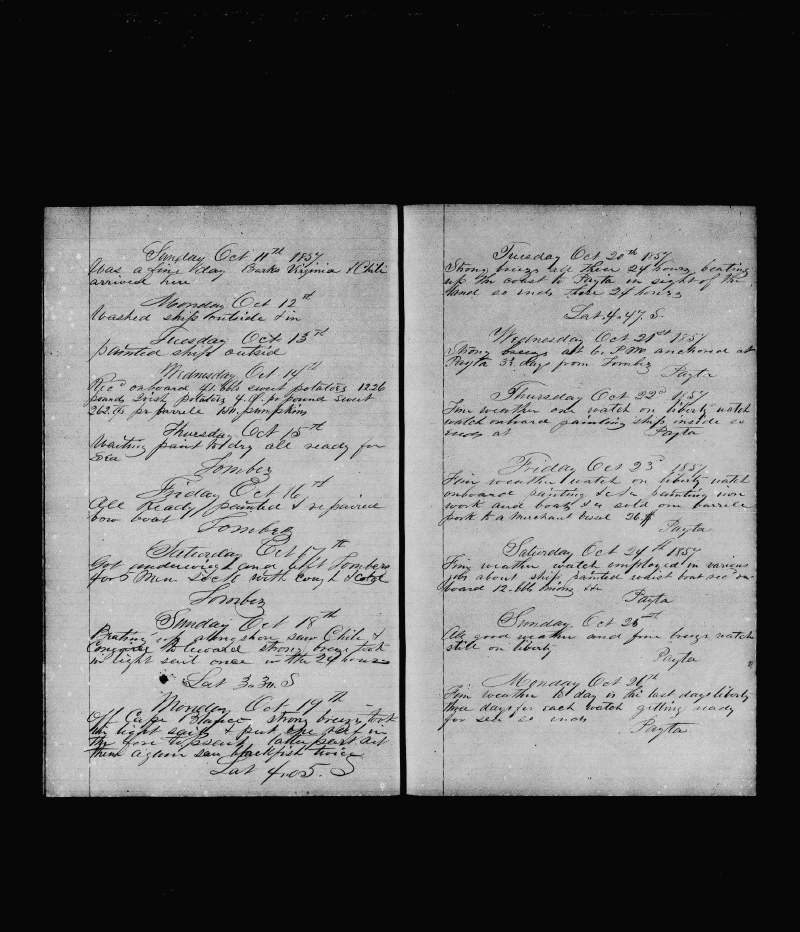 Sunday Oct 11th 1857
Was a fine day Barks Virginia & Chili
arrived here
Monday Oct 12th
Washed ship outside & in
Tuesday Oct 13th
painted ship outside
Wednesday Oct 14th
Recd onboard 41 bbls sweet potatoes 1226
pounds Irish potatoes 4.q. pr pound sweet
262. pr barrele pumpkins
Thursday Oct 15th
Waiting paint to dry all ready for
Sea
Tombez
Friday Oct 16th
All Ready painted & repaired
bow boat
Tombez
Saturday Oct 17th
Got underweigh and left Tombers
for 5 Men Sick with cough & cold
Tombez
Sunday Oct 18th
Beating up alongshore saw Chili &
to leward strong breeze took
in light sail once in the 24 hours
Lat 3.34. S
Monday Oct 19th
Off Cape Blanco, strong breeze took
in light sails & put one reef in
the fore topsail latter part set
them again saw blackfish twice
Lat 4.05. S
Tuesday Oct 20th 1857
Strong breeze all these 24 hours beating
up the coast to Payta in sight of the
land so ends these 24 hours
Lat. 4.47. S.
Wednesday Oct 21st 1857
Strong breeze at 6. P.M. anchored at
Payta 3½ days from Tombez
Payta
Thursday Oct 22d 1857
Fine weather one watch on liberty watch
watch onboard painting ship inside so
ends at Payta
Friday Oct 23d 1857
Fine weather watch on liberty watch
onboard painting &c &c painting iron
work and boats &c sold one barrele
pork to a merchant vessel 26$
Payta
Saturday Oct 24th 1857
Fine weather watch employed in various
jobs about ship painted whist boat recd on
board 12 bbls onions &c
Payta
Sunday Oct 25th
All good weather and fine breeze watch
still on liberty
Payta
Monday Oct 26th
Fine weather to day is the last days liberty
three days for each watch getting ready
for sea so ends
Payta